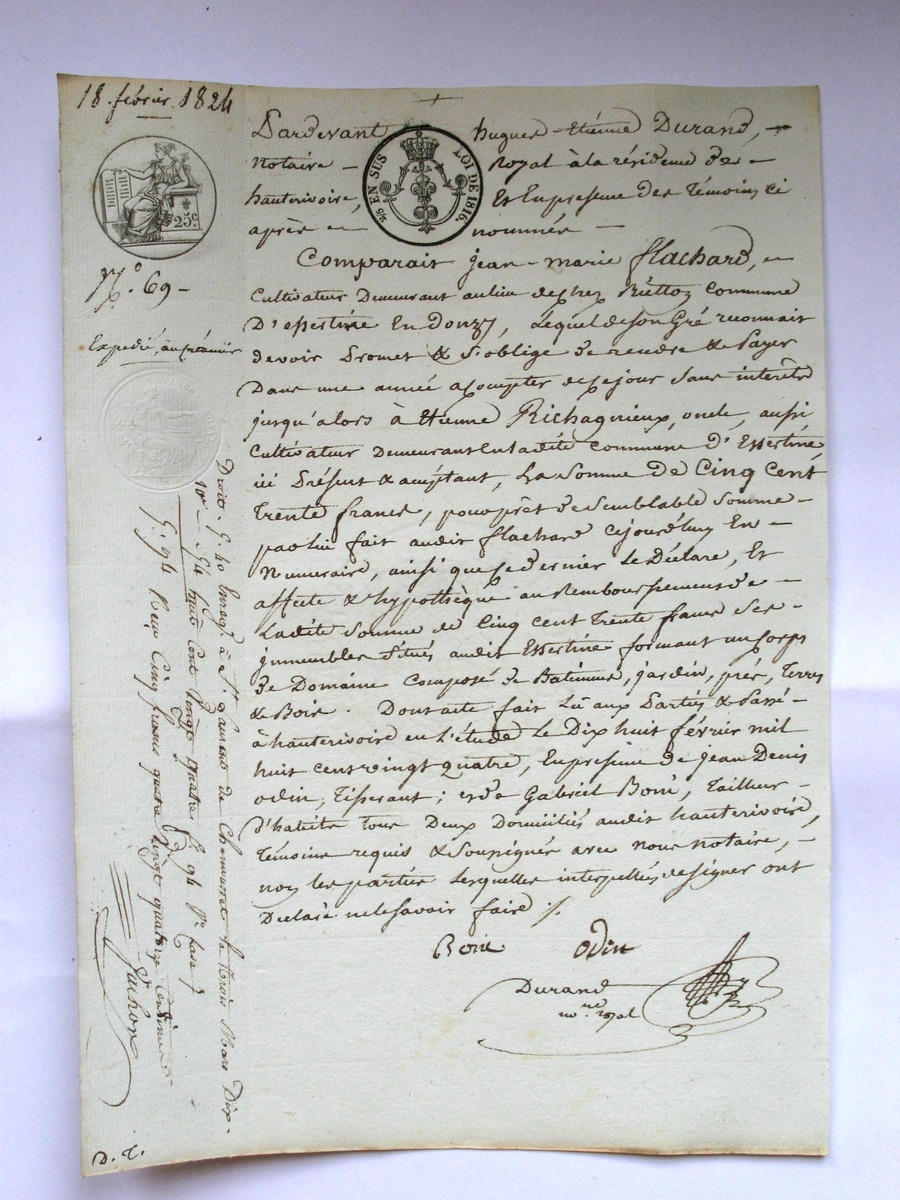 18. février. 1824
25c.
EN SUS LOI DE 1816.
N.° 69 -
Expedié, au créancier
Pardevant hugues-Etiénne Durand, -
Notaire - Royal à la résidence de -
hauterivoire, Et En presence des témoins ci
après - nommés -
Comparait jean-marie flachard,
Cultivateur Demeurant au lieu de chez Commune
D'essertine En Donzy, Lequel de son Gré reconnait
devoir Promet & S'oblige de rendre & Payer
Dans une année a Compter de ce jour Sans interêts
jusqu'alors à Etienne Richagnieux, oncle, aussi
Cultivateur Demeurant En la dite Commune D'Essertine
ici Présent & acceptant, La Somme De Cinq Cent
trente francs, pour prêt de Semblable Somme -
par lui fait audit flachard Cejourd'huy En -
Numeraire, ainsi que ce dernier le Déclare, Et
affecte & hypothèque au Remboursement de -
Ladite Somme de Cinq Cent trente francs Ses -
immeubles Situés audit Essertine formant un Corps
de Domaine Composé de Batiments, jardin, prés, Terres
& Bois. Dont acte fait Lû aux Parties & Passé -
à hauterivoire en L'étude Le Dix huit février mil
huit cent vingt quatre, En presence de jean Denis
odin, Tisserant; et de Gabriel Tailleur -
d'habits tous Deux Domiciliés audit hauterivoire,
Témoins requis & Soussignés avec nous notaire, -
non les parties Lesquelles interpellées de signer ont
Déclaré ne le savoir faire ./.
odin
Durand
no.re royal
Enreg.é à S.t Laurent de Chamousset le trois Mars Dix-
huit Cent Vingt quatre f.° 94
Reçu Cinq francs quatre Vingt quatorze Centimes
D. T.